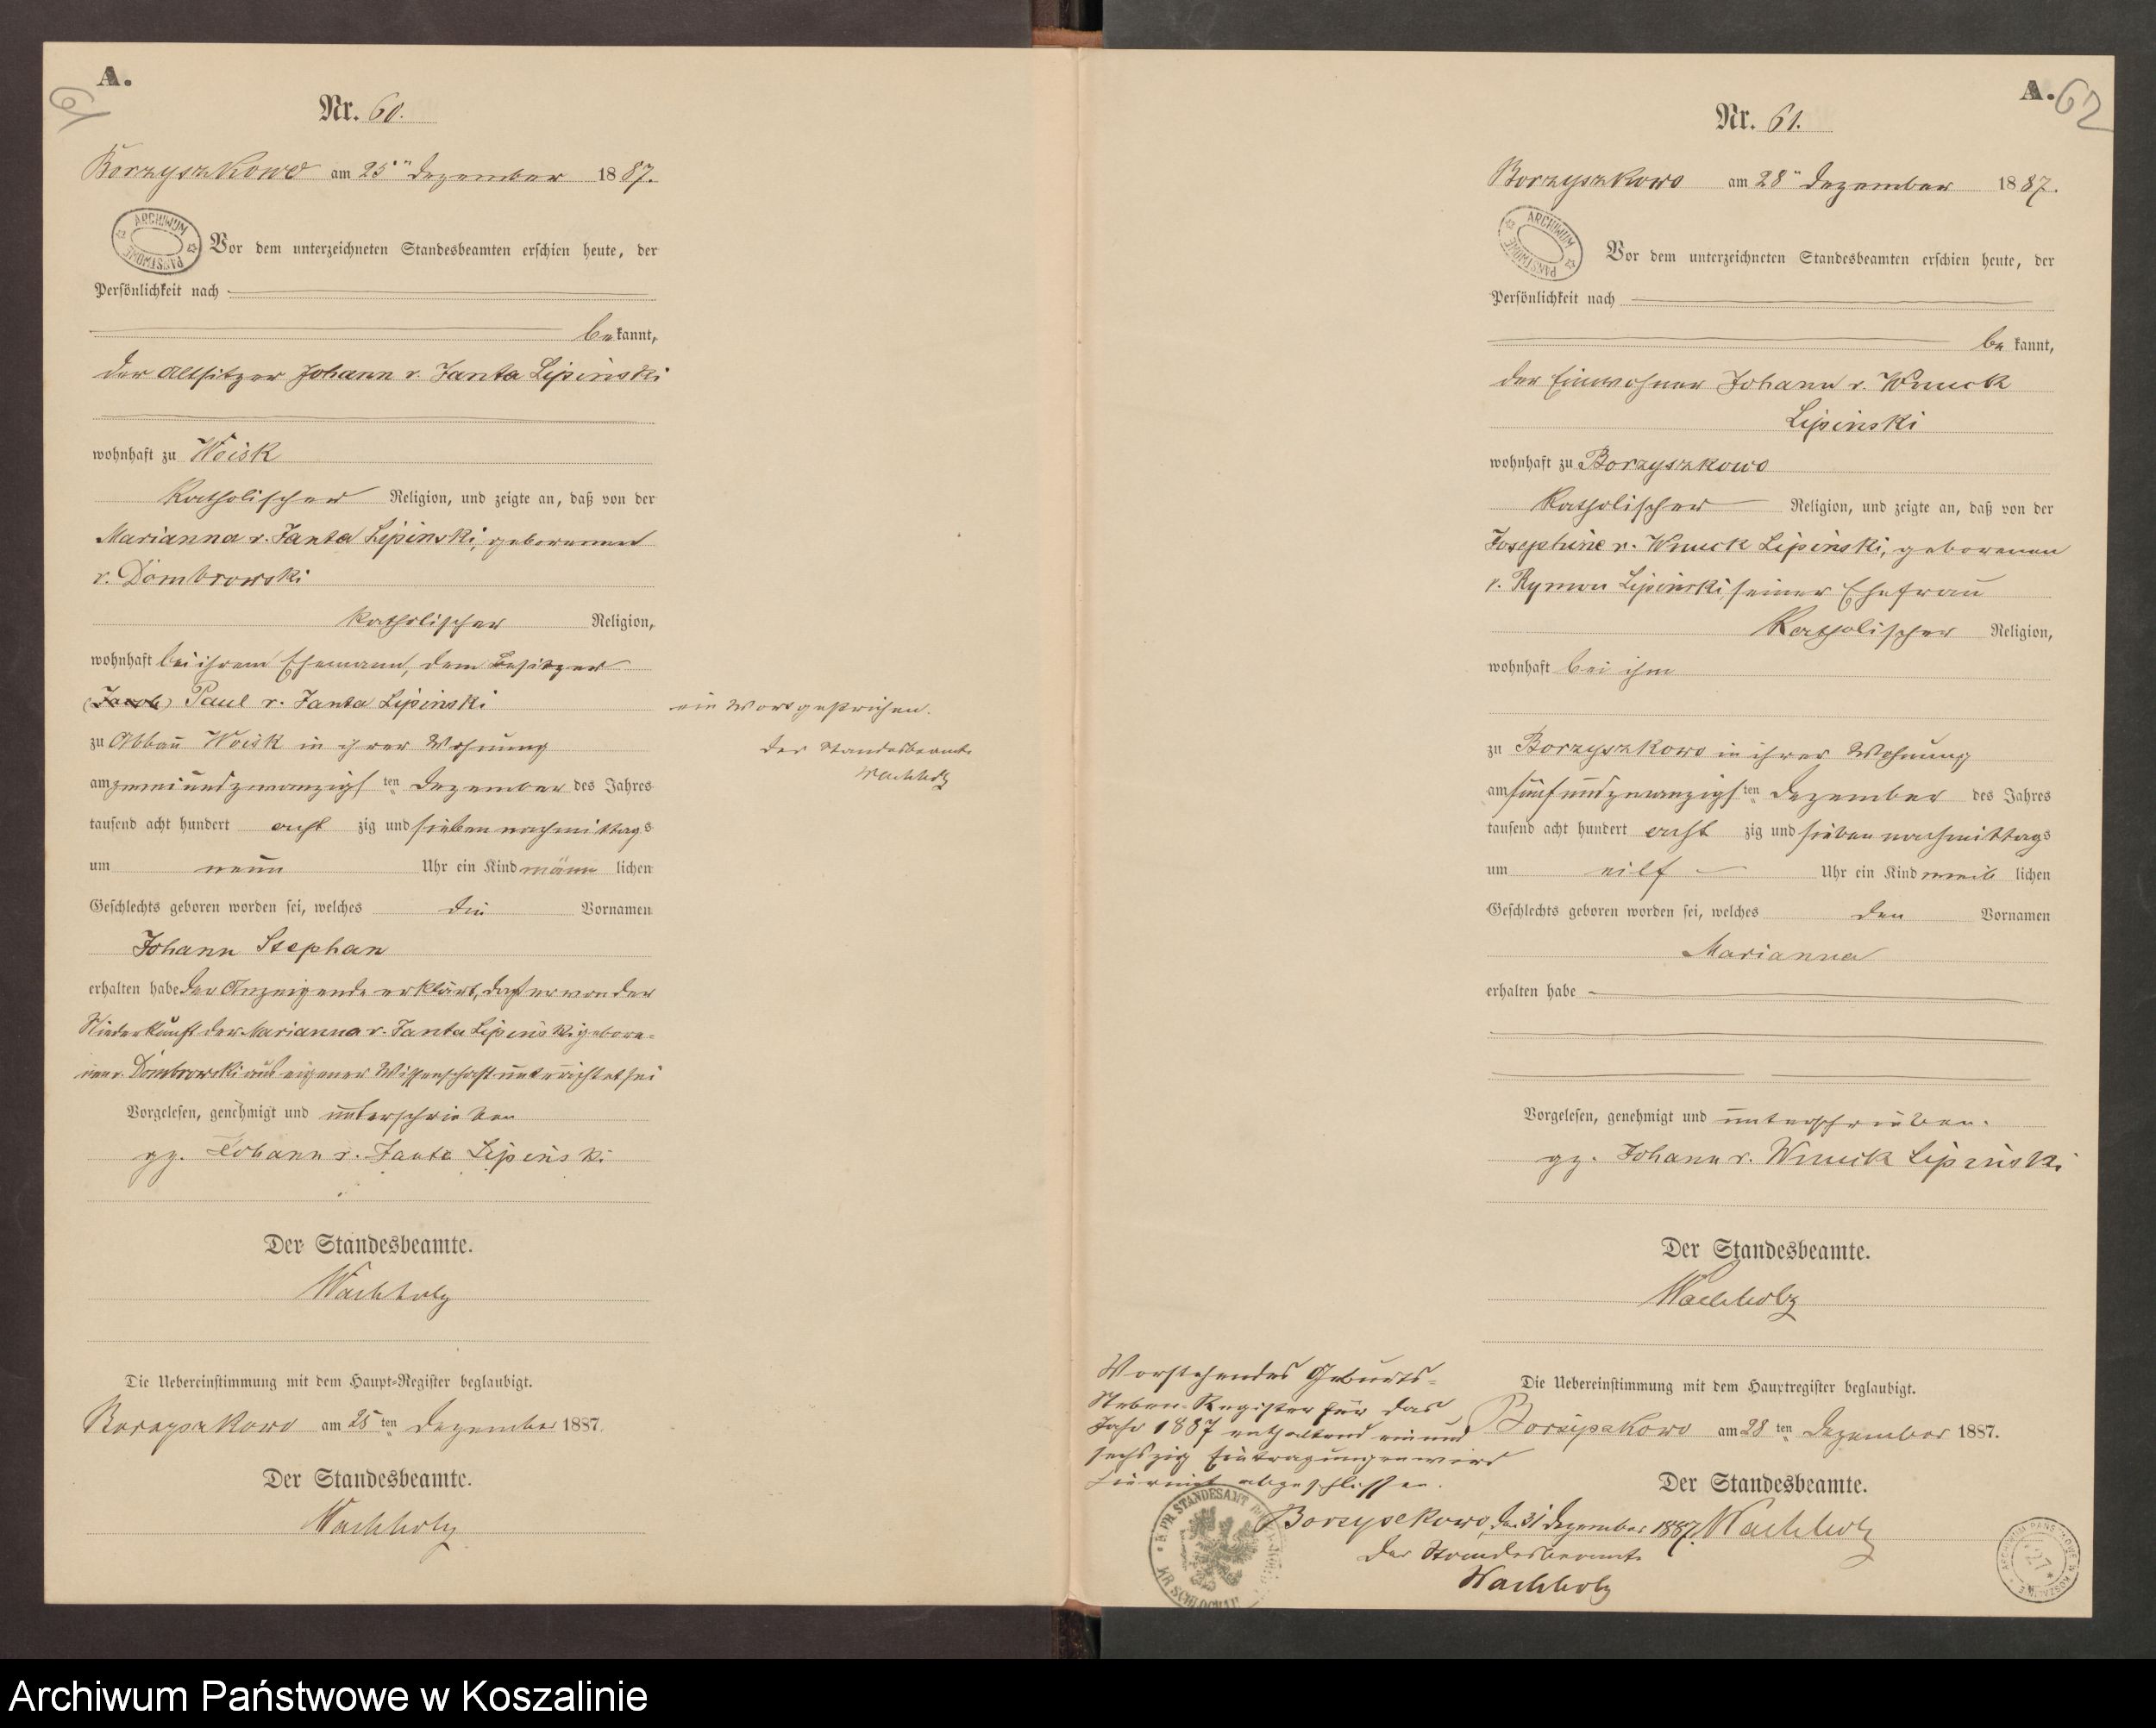 A.
61
Nr. 60.
Borzyszkowo am 25ten Dezember 1887.
ARCHIWUM PAŃSTWOWE
Vor dem unterzeichneten Standesbeamten erschien heute, der
Persönlichkeit nach
bekannt,
der Altsitzer Johann v. Janta Lipinski
wohnhaft zu Woisk
katholischer Religion, und zeigte an, daß von der
Marianna v. Janta Lipinski, geborenen
v. Dombrowski
katholischer Religion,
wohnhaft bei ihrem Ehemann, dem Besitzer
(Jacob) Paul v. Janta Lipinski
zu Abbau Woisk in ihrer Wohnung
am zwei und zwanzigsten Dezember des Jahres
tausend acht hundert acht zig und sieben nachmittags
um neun Uhr ein Kind männlichen
Geschlechts geboren worden sei, welches die Vornamen
Johann Stephan
erhalten habe Der Anzeigende erklärt, daß er von der
Niederkunft der Marianna v. Janta Lipinski gebore-
nen v. Dombrowski aus eigener Wissenschaft unterrichtet sei
Vorgelesen, genehmigt und unterschrieben
gz. Johann v. Janta Lipinski
Der Standesbeamte.
Wachholz
Die Uebereinstimmung mit dem Haupt-Register beglaubigt.
Borzyszkowo am 25ten Dezember 1887.
Der Standesbeamte.
Wachholz
ein Wort gestrichen.
Der Standesbeamte
Wachholz
A.
62
Nr. 61.
Borzyszkowo am 28ten Dezember 1887.
ARCHIWUM PAŃSTWOWE
Vor dem unterzeichneten Standesbeamten erschien heute, der
Persönlichkeit nach
bekannt,
der Einwohner Johann v. Wnuck
Lipinski
wohnhaft zu Borzyszkowo
katholischer Religion, und zeigte an, daß von der
Josephine v. Wnuck Lipinski, geborenen
v. Rymon Lipinski, seiner Ehefrau
katholischer Religion,
wohnhaft bei ihm
zu Borzyszkowo in ihrer Wohnung
am fünf und zwanzigsten Dezember des Jahres
tausend acht hundert acht zig und sieben nachmittags
um eilf Uhr ein Kind weiblichen
Geschlechts geboren worden sei, welches den Vornamen
Marianna
erhalten habe
Vorgelesen, genehmigt und unterschrieben.
gz. Johann v. Wnuck Lipinski
Der Standesbeamte.
Wachholz
Die Uebereinstimmung mit dem Hauptregister beglaubigt.
Borzyszkowo am 28ten Dezember 1887.
Der Standesbeamte.
Wachholz
Vorstehendes Geburts-
Neben-Register für das
Jahr 1887 enthaltend ein und
sechszig Eintragungen wird
hiermit abgeschlossen.
Borzyszkowo, den 31 Dezember 1887.
Der Standesbeamte
Wachholz
K. PR. STANDESAMT
KR. SCHLOCHAU
ARCHIWUM PAŃSTWOWE W KOSZALINIE
27
Archiwum Państwowe w Koszalinie